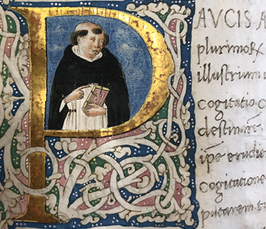 PAUCIS A
plurimos
illustrium
cogitatio
destinare
ipse erudi
cogitatione
putarem